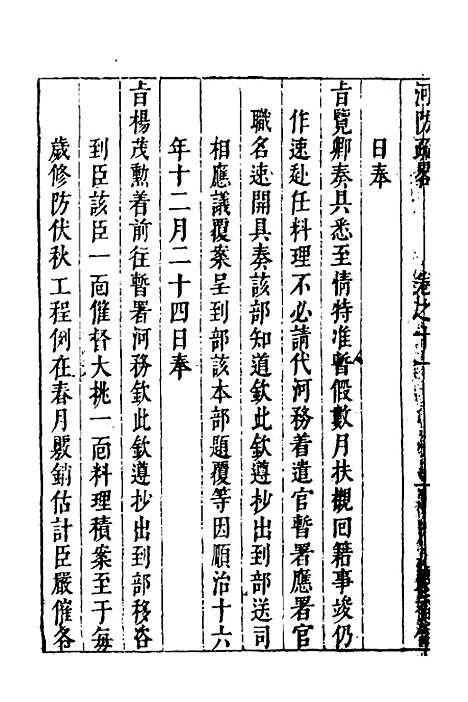 河防疏畧
卷之十一
日奉
旨覽卿奏具悉至情特准暫假數月扶櫬回籍事竣仍
作速赴任料理不必請代河務着遣官暫署應署官
職名速開具奏該部知道欽此欽遵抄出到部送司
相應議覆案呈到部該本部題覆等因順治十六
年十二月二十四日奉
旨楊茂勳着前往暫署河務欽此欽遵抄出到部移咨
到臣該臣一面催督大挑一面料理積案至于每
歲修防伏秋工程例在春月覈銷估計臣嚴催各